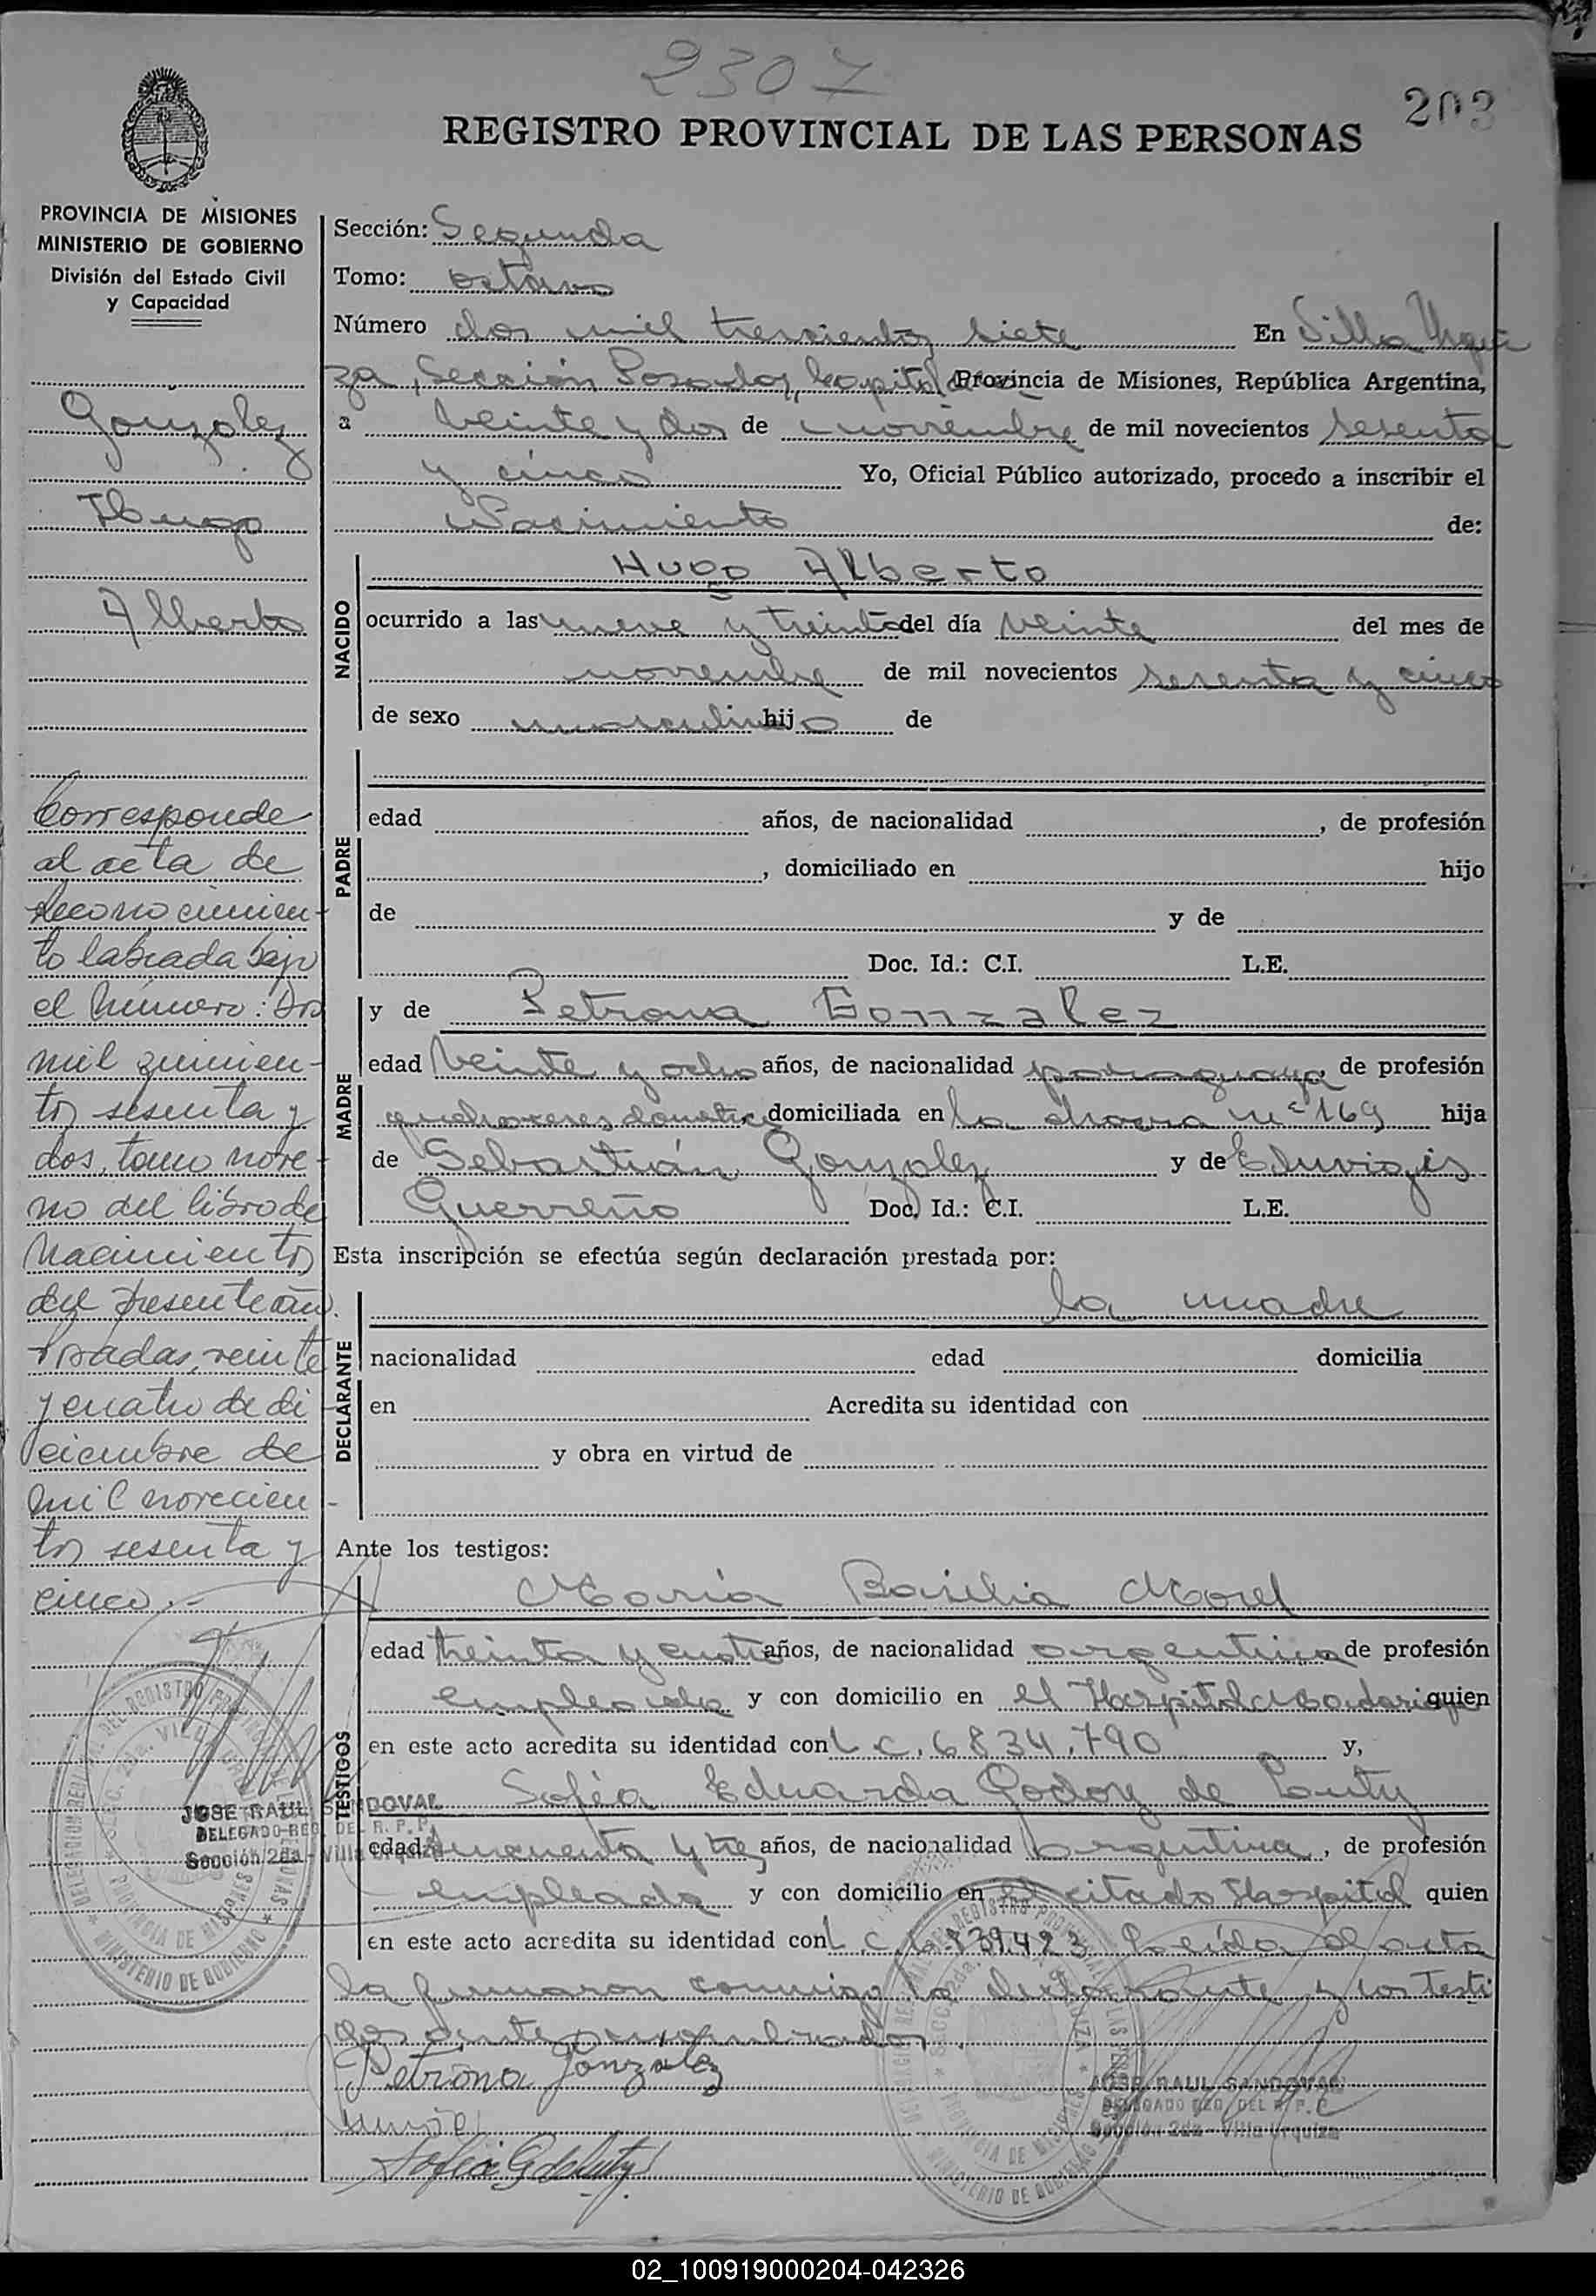 2307
203
REGISTRO PROVINCIAL DE LAS PERSONAS
PROVINCIA DE MISIONES
MINISTERIO DE GOBIERNO
División del Estado Civil
y Capacidad
Gonzalez
Hugo
Alberto
Corresponde
al acta de
Reconocimien-
to labrada bajo
el Número: Dos
mil quinien-
tos sesenta y
dos, tomo nove-
no del libro de
Nacimientos
del presente año.
Posadas, veinte
y cuatro de di
ciembre de
mil novecien-
tos sesenta y
cinco.-
JOSE RAUL SANDOVAL
DELEGADO REG. DEL R. P. P.
Sección 2da - Villa Urquiza
Sección: Segunda
Tomo: octavo
Número dos mil trescientos siete En Villa Urqui
za, Sección Posadas, Capital de Provincia de Misiones, República Argentina,
a veinte y dos de noviembre de mil novecientos sesenta
y cinco Yo, Oficial Público autorizado, procedo a inscribir el
Nacimiento de:
NACIDO
Hugo Alberto
ocurrido a las nueve y treinta del día veinte del mes de
noviembre de mil novecientos sesenta y cinco
de sexo masculino hijo de
PADRE
edad años, de nacionalidad , de profesión
, domiciliado en hijo
de y de
Doc. Id.: C.I. L.E.
MADRE
y de Petrona Gonzalez
edad veinte y ocho años, de nacionalidad paraguaya, de profesión
quehaceres domestico domiciliada en la chacra nº 169 hija
de Sebastián Gonzalez y de Eduvigis
Guerreño Doc. Id.: C.I. L.E.
Esta inscripción se efectúa según declaración prestada por:
DECLARANTE
la madre
nacionalidad edad domicilia
en Acredita su identidad con
y obra en virtud de
Ante los testigos:
TESTIGOS
María Basilia Morel
edad treinta y cuatro años, de nacionalidad argentina de profesión
empleada y con domicilio en el Hospital Madariaga quien
en este acto acredita su identidad con L.C. 6834.790 y,
Sofia Eduarda Godoy de Luty
edad cincuenta y tres años, de nacionalidad argentina, de profesión
empleada y con domicilio en el citado Hospital quien
en este acto acredita su identidad con L.C. Leída el acta
la firmaron conmigo la declarante y los testi
gos antes nombrados.
Petrona Gonzalez
Sofia G de Luty
JOSE RAUL SANDOVAL
DELEGADO REG. DEL R. P. P.
Sección 2da - Villa Urquiza
02_100919000204-042326